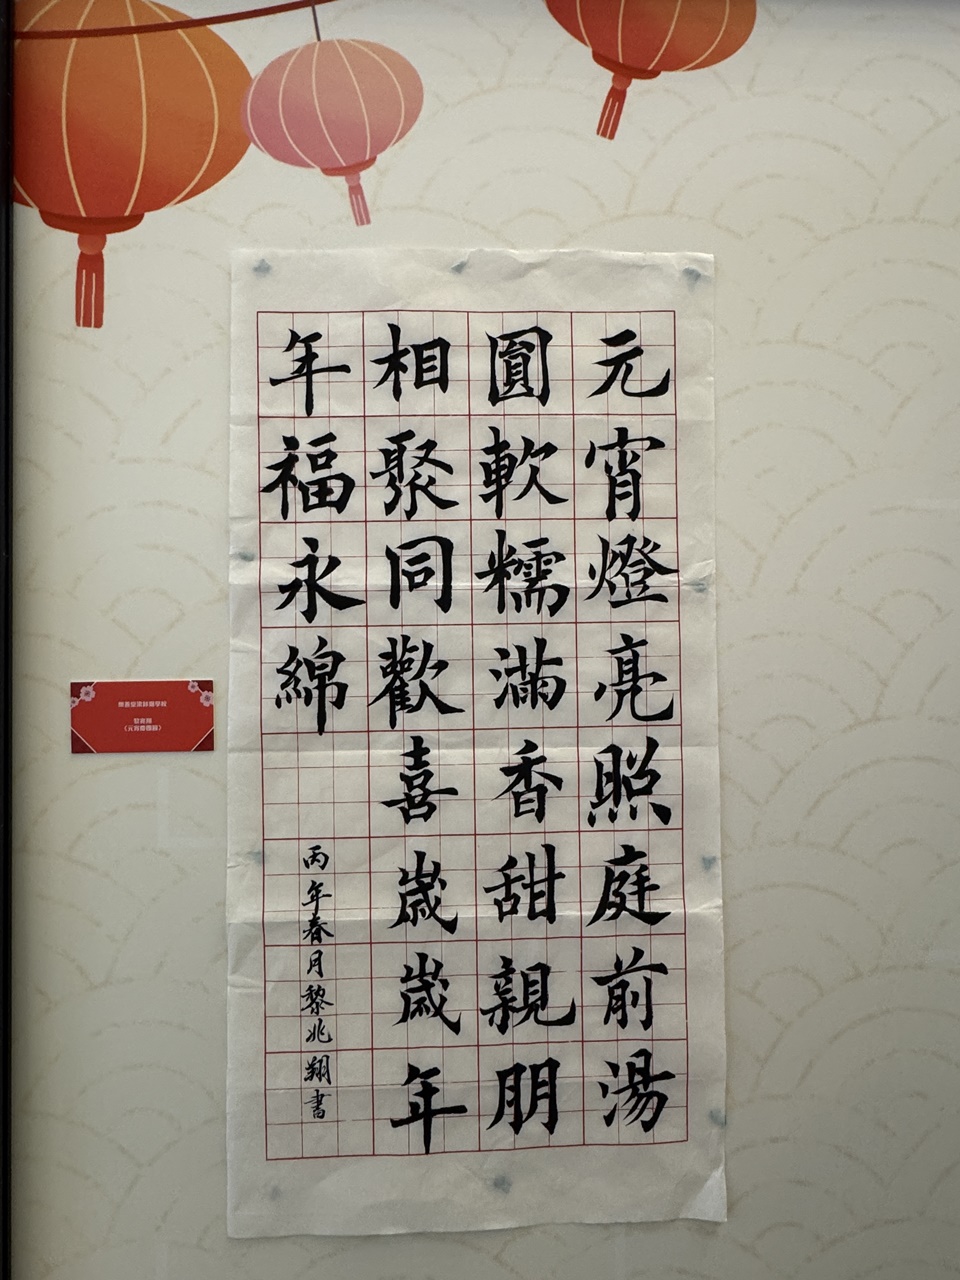 元宵燈亮照庭前湯
圓軟糯滿香甜親朋
相聚同歡喜歲歲年
年福永綿
丙年春月黎兆翔書
黎兆翔
《元宵慶團圓》